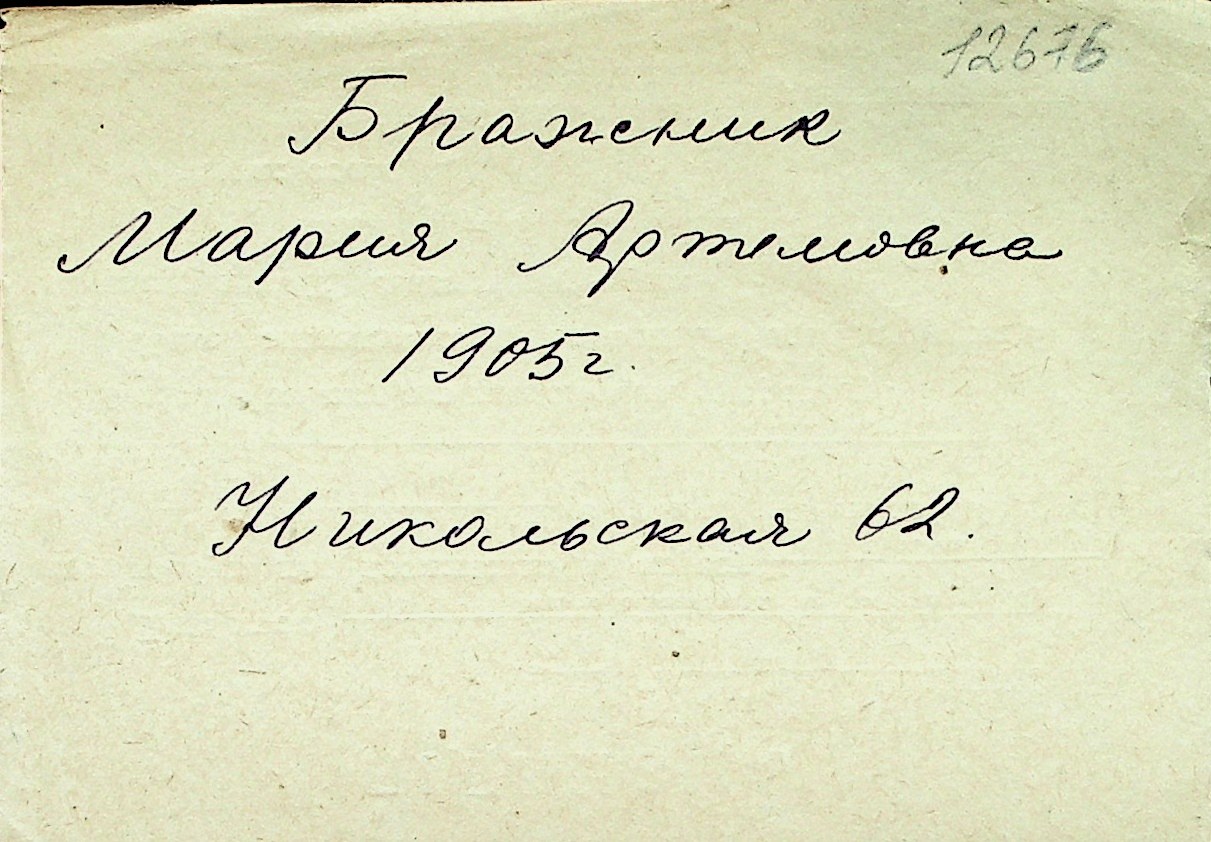 12676
Бражник
Мария Артемовна
1905г.
Никольская 62.